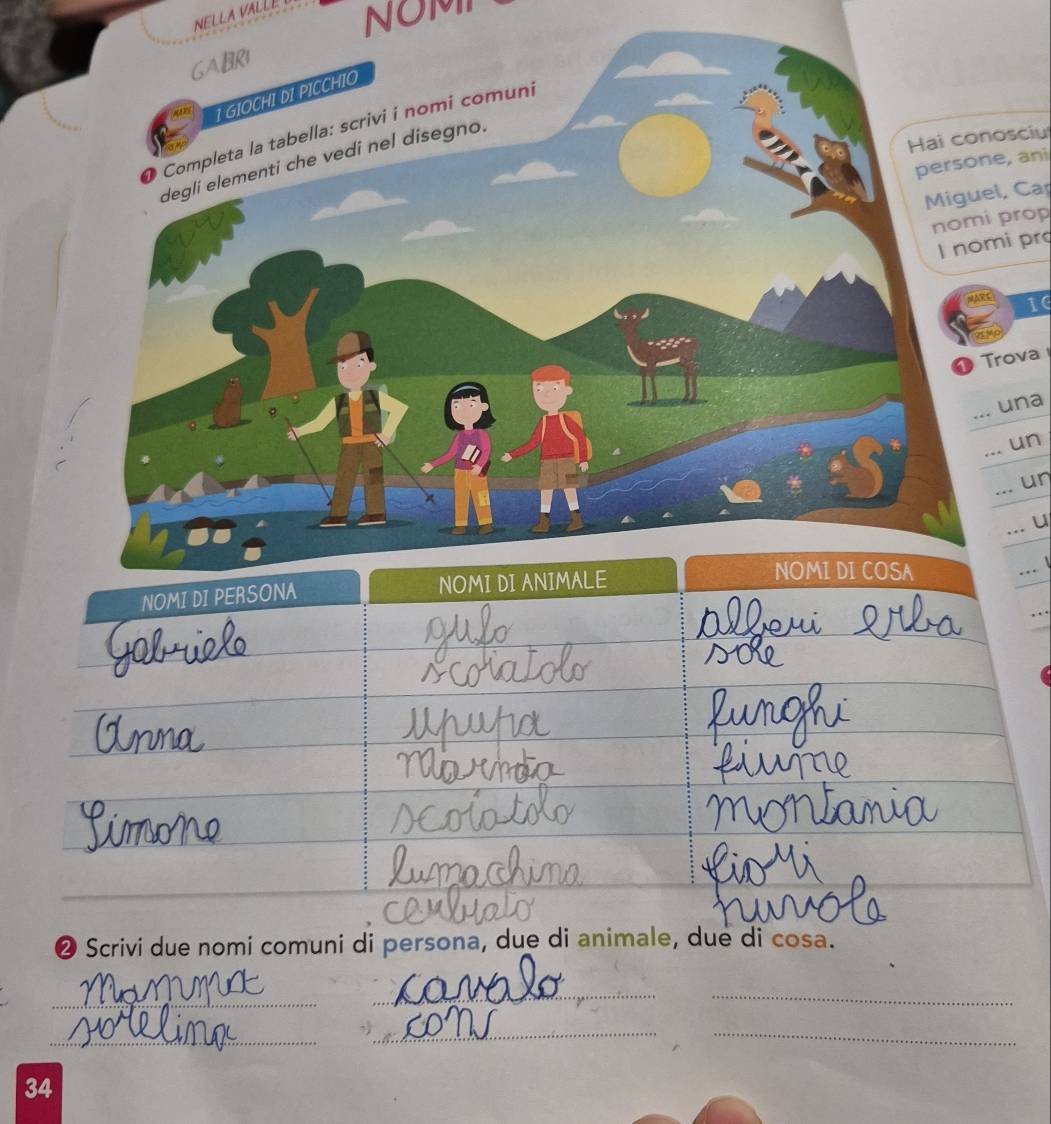 NELLA VALLE
NOMI
GABRI
MARE
REMO
I GIOCHI DI PICCHIO
1 Completa la tabella: scrivi i nomi comuni
degli elementi che vedi nel disegno.
NOMI DI PERSONA
NOMI DI ANIMALE
NOMI DI COSA
Gabriele
gufo
alberi erba
scoiatolo
sole
Anna
upupa
funghi
marmota
fiume
Simone
scoiatolo
montania
lumachina
fiori
cerbiato
nuvole
2 Scrivi due nomi comuni di persona, due di animale, due di cosa.
mamma
cavalo
sorelina
34
Hai conosciu
persone, ani
Miguel, Cap
nomi prop
I nomi pro
MARE
REMO
I G
1 Trova
... una
... un
... un
... u
...
...